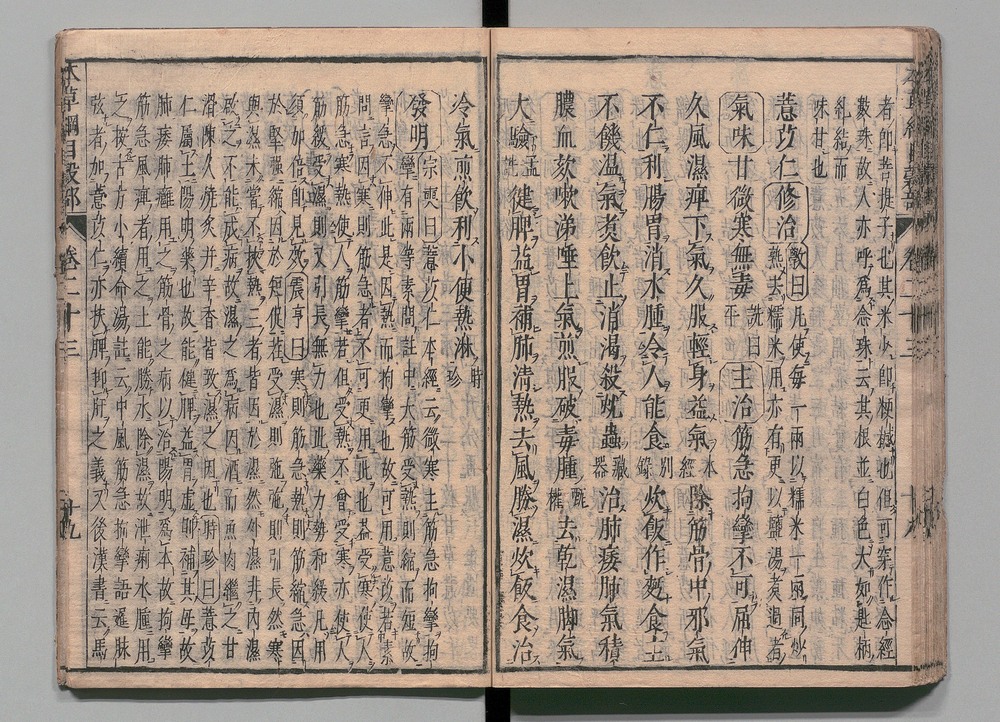 者即菩提子也其米少即粳𥽇也但可穿作念經
數珠故人亦呼爲念珠云其根並白色大如匙柄
糺結而
味甘也
薏苡仁 修治 斅曰 凡使每一兩以糯米一兩同炒
熟去糯米用亦有更以鹽湯煮過者
氣味 甘微寒無毒 詵曰平 主治 筋急拘攣不可屈伸
久風濕痹下氣久服輕身益氣 本經 除筋骨中邪氣
不仁利腸胃消水腫令人能食 別錄 炊飯作麪食主
不饑溫氣煮飲止消渴殺蚘蟲 藏器 治肺痿肺氣積
膿血欬嗽涕唾上氣煎服破毒腫 甄權 去乾濕脚氣
大驗 孟詵 健脾益胃補肺清熱去風勝濕炊飯食治
冷氣煎飲利小便熱淋 時珍
發明 宗奭曰 薏苡仁本經云微寒主筋急拘攣拘
攣有兩等素問註中大筋受熱則縮而短故
攣急不伸此是因熱而拘攣也故可用薏苡若素
問言因寒則筋急者不可更用此也蓋受寒使人
筋急寒熱使人筋攣若但受熱不曾受寒亦使人
筋緩受濕則又引長無力也此藥力勢和緩凡用
須加倍即見效 震亨曰 寒則筋急熱則筋縮急因
於堅强縮因於短促若受濕則弛弛則引長然寒
與濕未嘗不挾熱三者皆因於濕然外濕非內濕
啟之不能成病故濕之爲病因酒而魚肉繼之甘
滑陳久燒炙并辛香皆致濕之因也 時珍曰 薏苡
仁屬土陽明藥也故能健脾益胃虛則補其母故
肺痿肺癰用之筋骨之病以治陽明爲本故拘攣
筋急風痹者用之土能勝水除濕故泄痢水腫用
之按古方小續命湯註云中風筋急拘攣語遲脉
弦者加薏苡仁亦扶脾抑肝之義又後漢書云馬
本草綱目穀部 卷二十三 十九